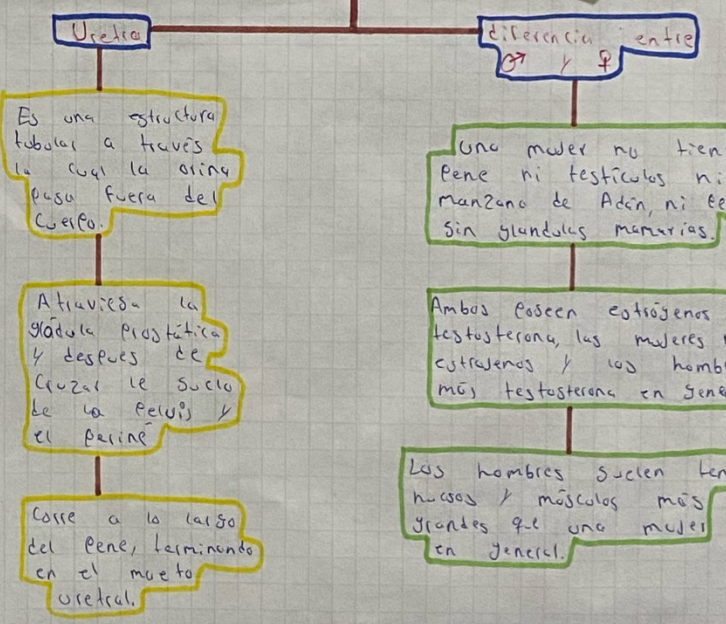 Uretra
Es una estructura
tubular a través
la cual la orina
pasa fuera del
cuerpo.
Atraviesa la
gládula prostática
y despues de
cruzar le suelo
de la pelvis y
el periné
Corre a lo largo
del pene, terminando
en el mueto
uretral.
diferencia entre
♂ y ♀
Una mujer no tien
pene ni testículos ni
manzana de Adán, ni pe
sin glandulas mamarias.
Ambos poseen estrógenos
testosterona, las mujeres
estrogenos y los homb
más testosterona en gene
Los hombres suelen ten
huesos y músculos más
grandes que una mujer
en general.